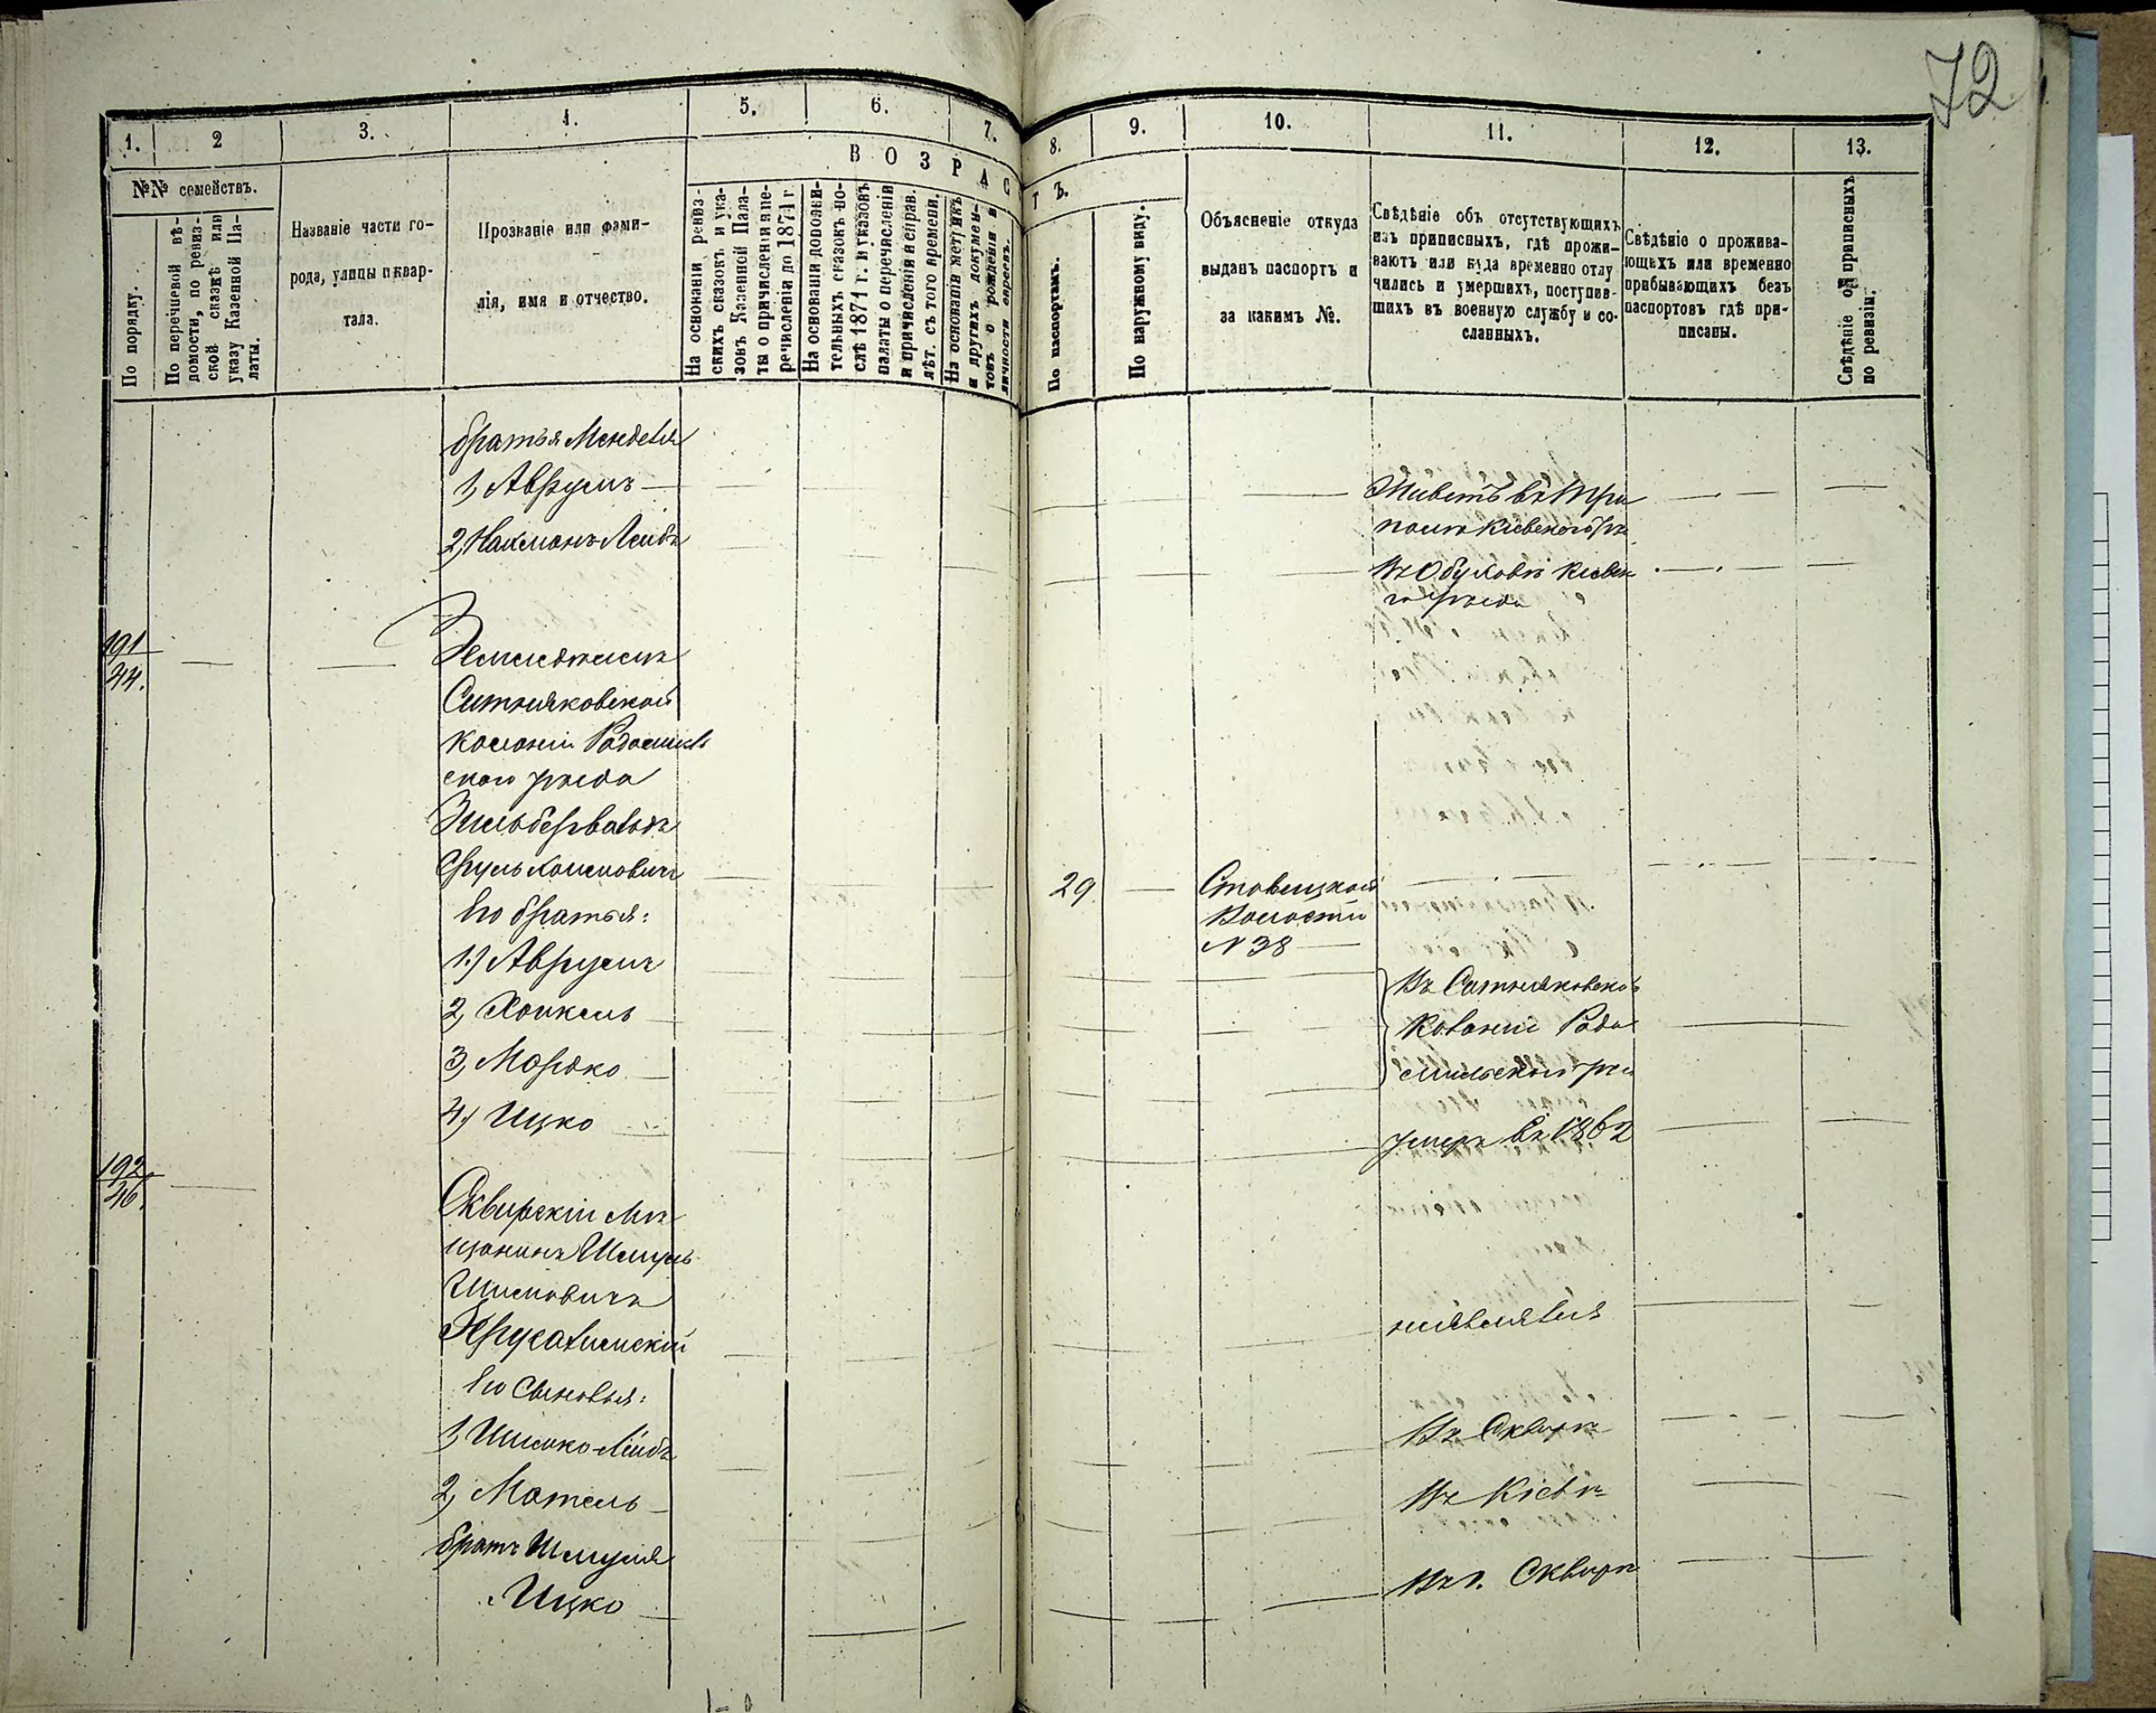 72
1.
2
3.
4.
5.
6.
7.
8.
9.
10.
11.
12.
13.
№№ семействъ.
ВОЗРАСТЪ.
По порядку.
По перечневой вѣ-
домости, по ревиз-
ской сказкѣ или
указу Казенной Па-
латы.
Названіе части го-
рода, улицы и квар-
тала.
Прозваніе или фами-
лія, имя и отчество.
На основаніи ревиз-
скихъ сказокъ и ука-
зовъ Казенной Пала-
ты о причисленіи и пе-
речисленіи до 1871 г.
На основаніи дополни-
тельныхъ сказокъ по-
слѣ 1871 г. и указовъ
палаты о перечисленіи
и причисленіи и справ.
лѣт. съ того времени.
На основаніи метрикъ
и другихъ докумен-
товъ о рожденіи и
личности евреевъ.
По паспортамъ.
По наружному виду.
Объясненіе откуда
выданъ паспортъ и
за какимъ №.
Свѣдѣніе объ отсутствующихъ
изъ приписныхъ, гдѣ прожи-
ваютъ или куда временно отлу-
чились и умершихъ, поступив-
шихъ въ военную службу и со-
сланныхъ.
Свѣдѣніе о прожива-
ющихъ или временно
прибывающихъ безъ
паспортовъ гдѣ при-
писаны.
Свѣдѣніе о приписныхъ
по ревизіи.
братья Менделя
1, Аврумъ
Живетъ въ Три
польѣ Кіевскаго
2, Нахманъ Лейбъ
въ Обуховѣ Кіевск
го уѣзда
191
44.
Земледѣлецъ
Ситняковской
колоніи Радомысль
скаго уѣзда
Зильбервальдъ
Сруль Хаимовичъ
29
Ставецкой
Волости
№ 38
Его братья:
1.) Аврумъ
2, Хаикель
3, Мордко
Въ Ситняковской
Колоніи Радо
мысльскаго
4.) Ицко
умеръ въ 1862
192
46.
Сквирскій мѣ
щанинъ Шмуль
Шимовичъ
неявился
Его сыновья:
1, Шимко-Лейбъ
Въ Сквирѣ
2, Мотель
Въ Кіевѣ
братъ Шмуля
Ицко
Въ г. Сквирѣ